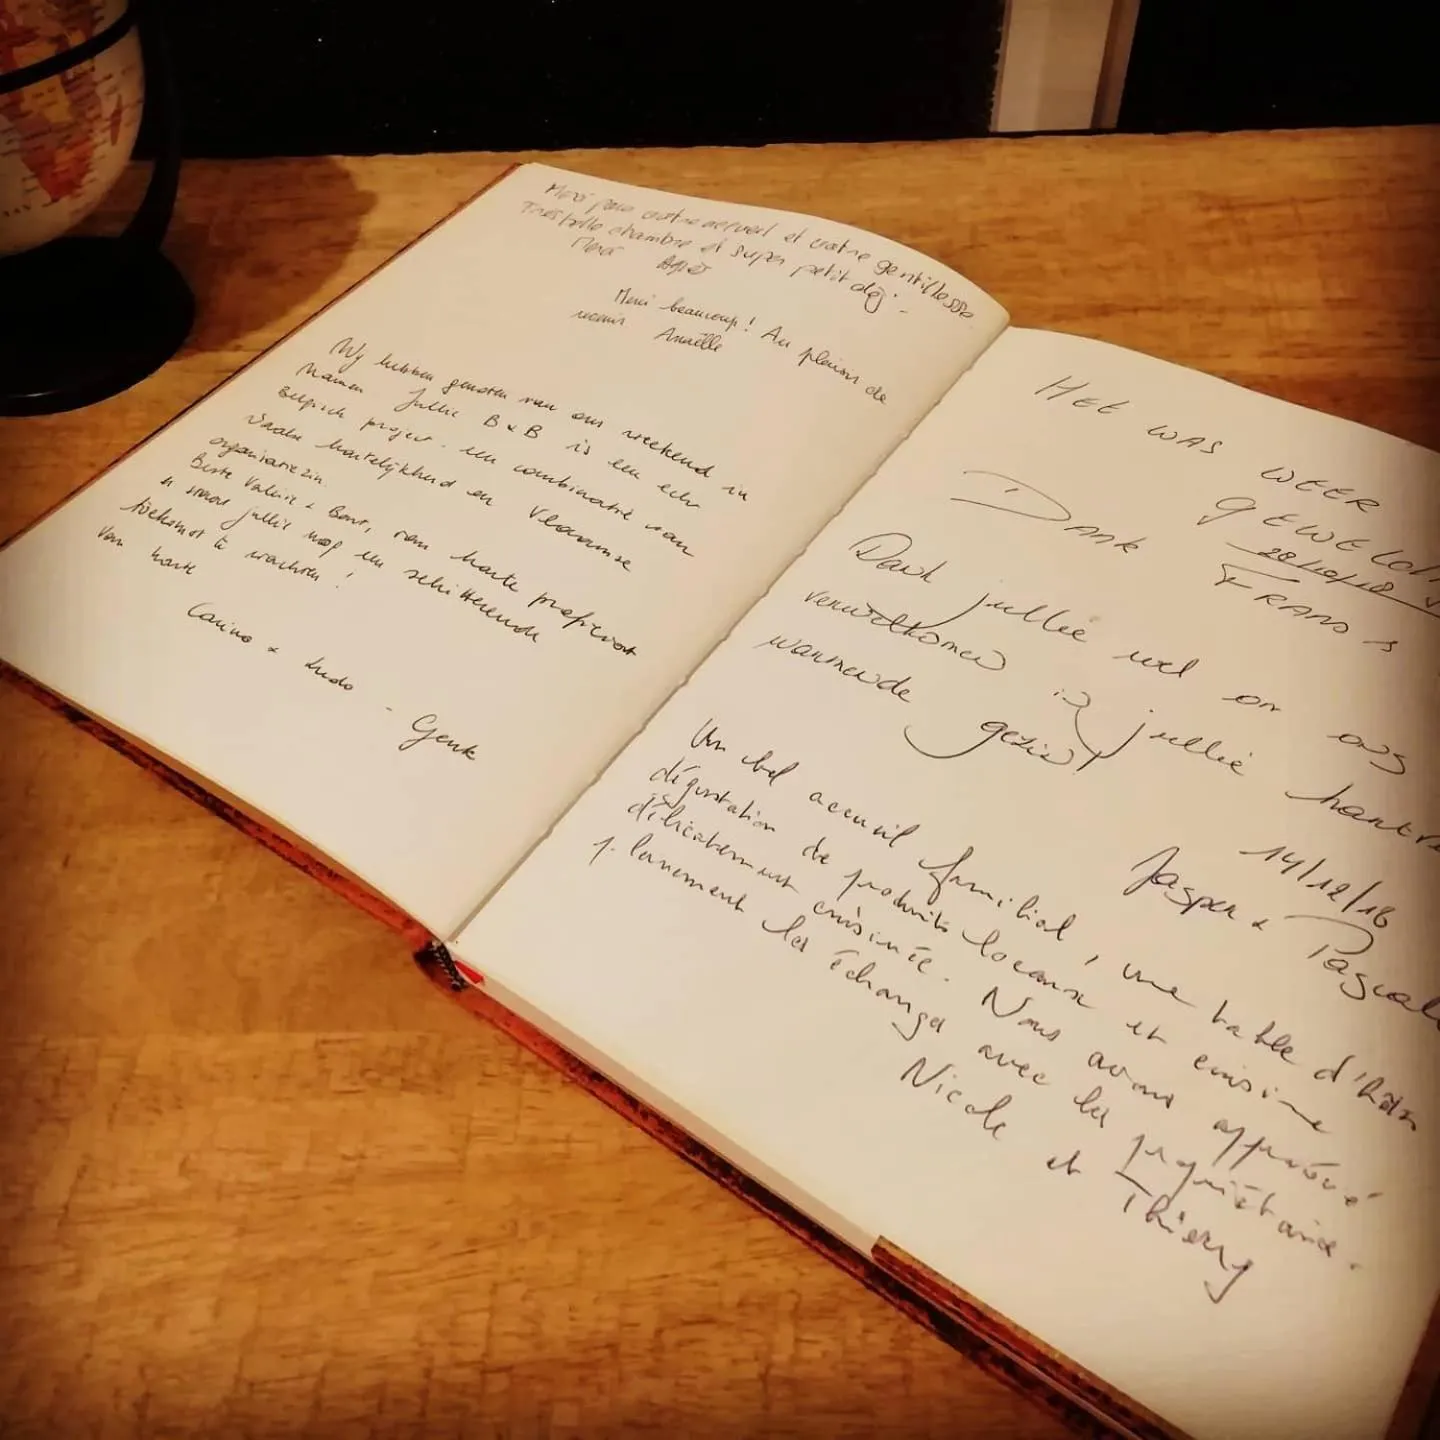 Merci pour votre accueil et votre gentillesse
Très belle chambre et super petit déj.
Merci
Merci beaucoup! Au plaisir de
revenir Anaëlle
Wij hebben genoten van ons weekend in
Namen. Jullie B & B is een echt
Belgisch project. een combinatie van
Waalse hartelijkheid en Vlaamse
organisatiezin.
Beste Valérie & Bart, van harte proficiat
er staat jullie nog een schitterende
toekomst te wachten!
Van harte
Carine & Ludo - Genk
HET WAS WEER
GEWELDIG
28/10/18
DANK FRANS
Dank jullie wel om ons
verwelkomen in jullie
warmende gezin!
14/12/18
Jasper & Pascale
Un bel accueil familial, une table d'hôte
dégustation de produits locaux et cuisine
délicatement cuisinée. Nous avons apprécié
pleinement les échanges avec les propriétaires.
Nicole et Thierry